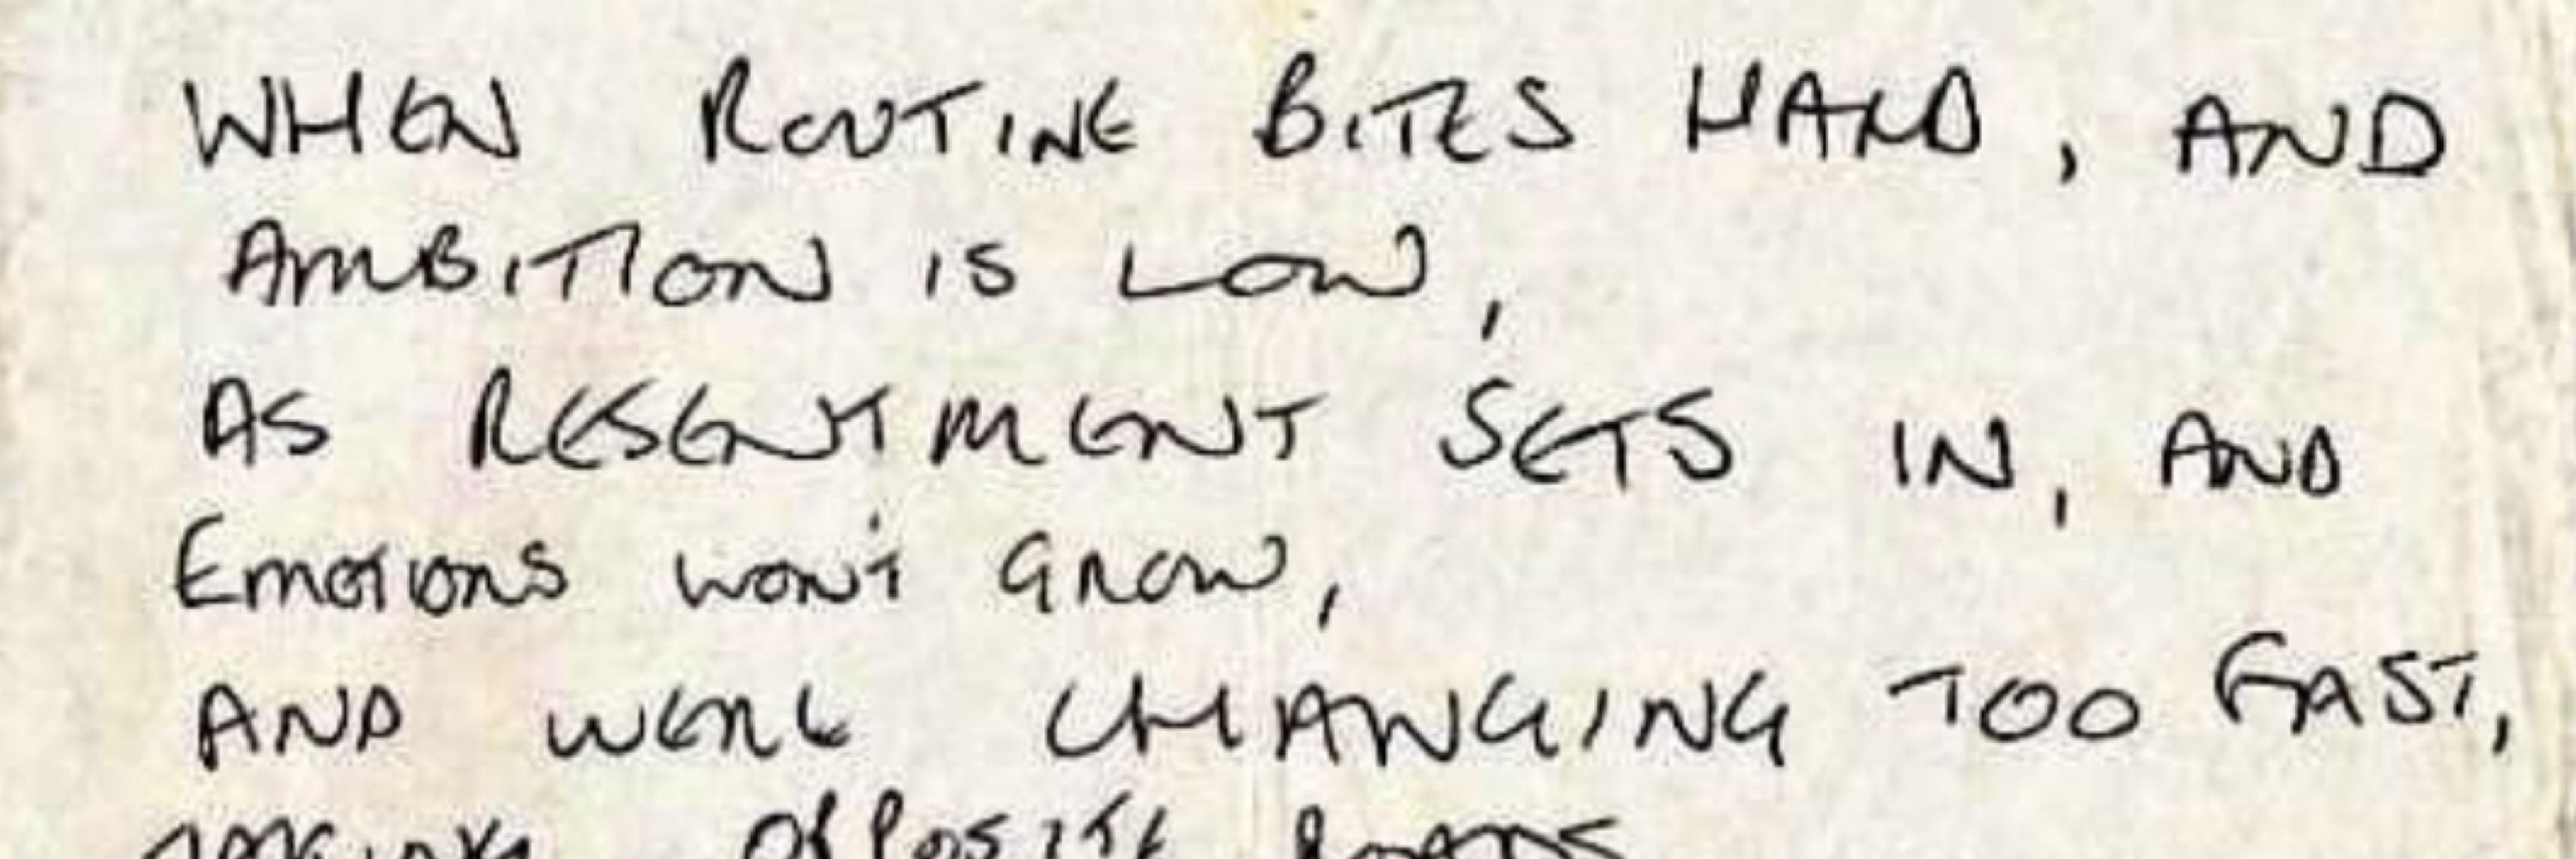 WHEN ROUTINE BITES HARD, AND
AMBITION IS LOW,
AS RESENTMENT SETS IN, AND
EMOTIONS WON'T GROW,
AND WERE CHANGING TOO FAST,
TAKING OPPOSITE ROADS